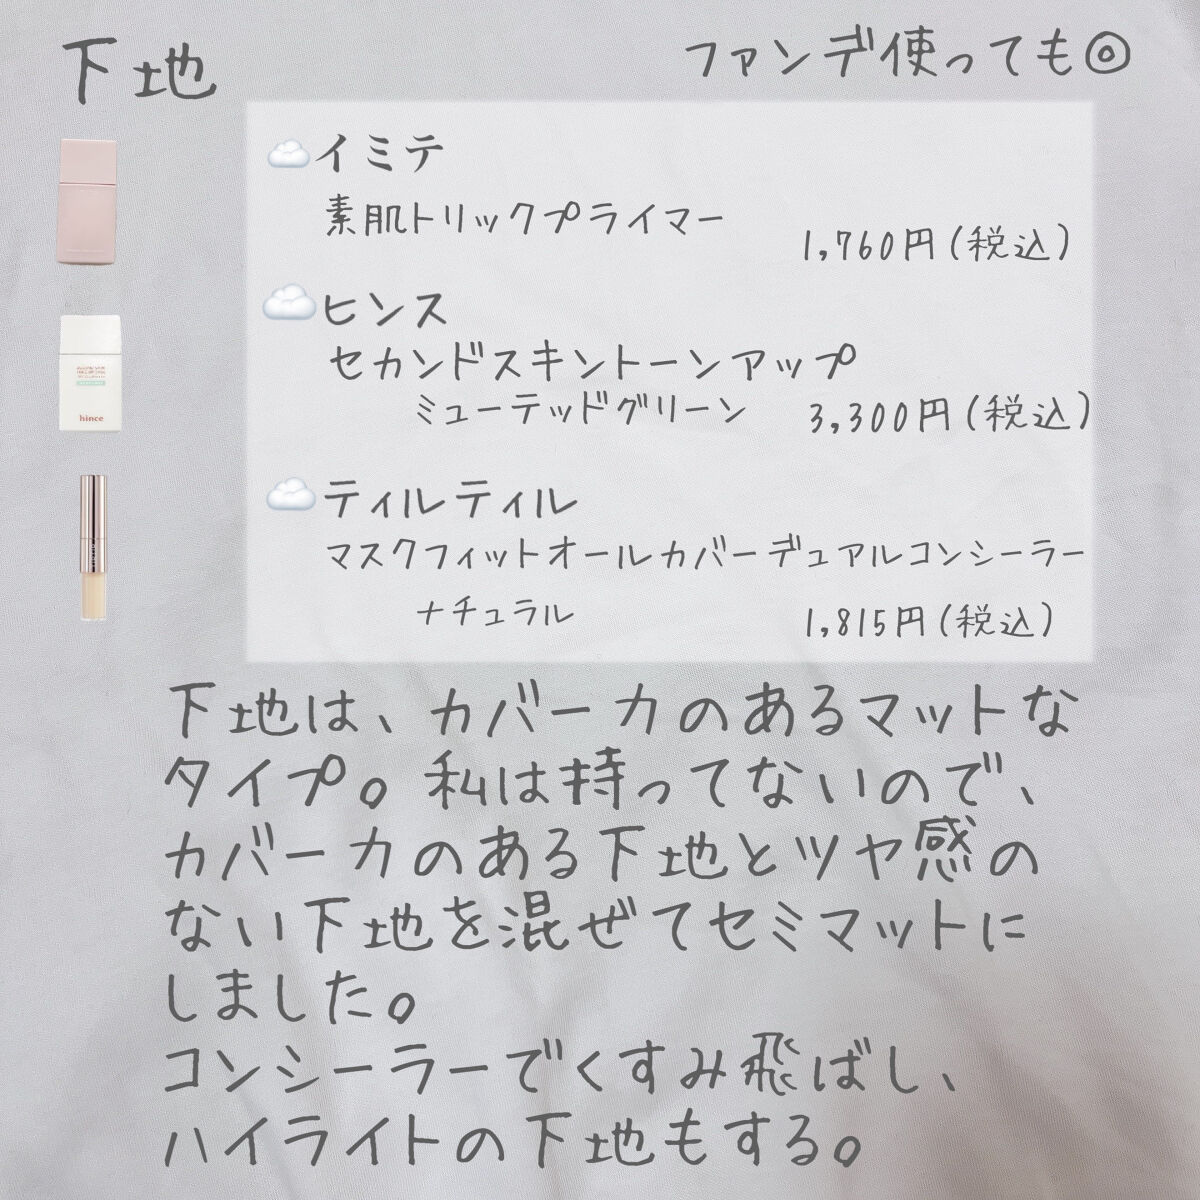 下地
ファンデ使っても◎
☁️イミテ
素肌トリックプライマー
1,760円(税込)
☁️ヒンス
セカンドスキントーンアップ
ミューテッドグリーン
3,300円(税込)
☁️ティルティル
マスクフィットオールカバーデュアルコンシーラー
ナチュラル
1,815円(税込)
hince
下地は、カバー力のあるマットな
タイプ。私は持ってないので、
カバー力のある下地とツヤ感の
ない下地を混ぜてセミマットに
しました。
コンシーラーでくすみ飛ばし、
ハイライトの下地もする。